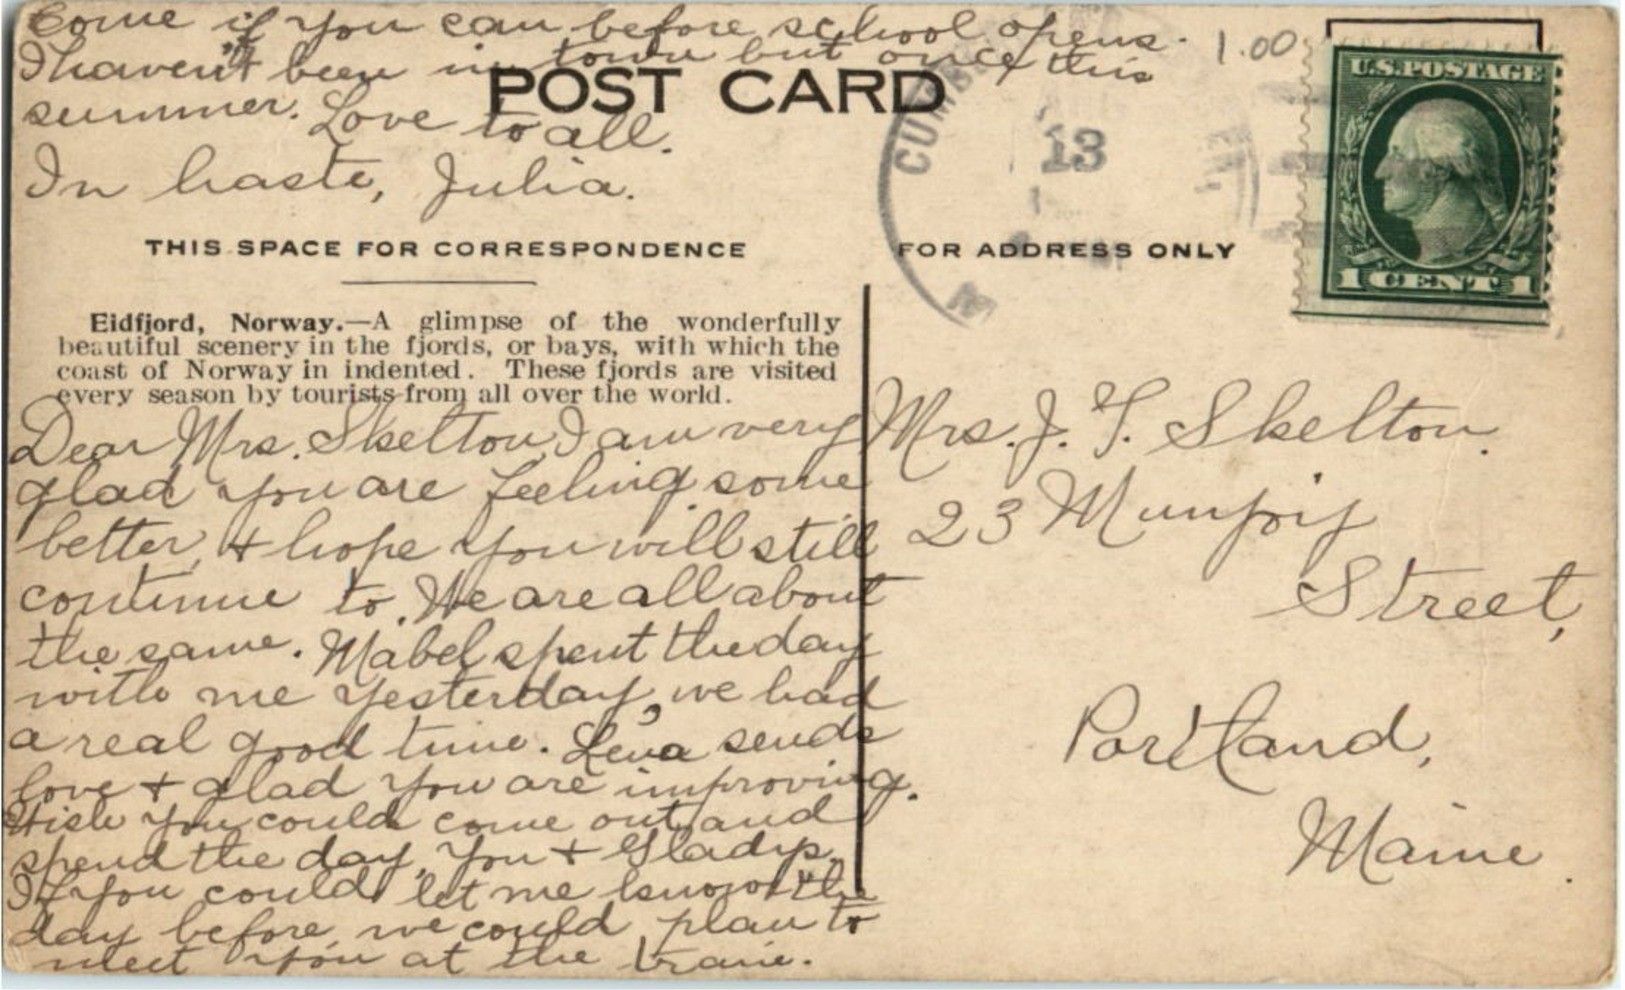 Come if you can before school opens.
I haven't been in town but once this
summer. Love to all.
In haste, Julia.
1.00
POST CARD
CUMBE
13
M
U.S. POSTAGE
1 CENT 1
THIS SPACE FOR CORRESPONDENCE
FOR ADDRESS ONLY
Eidfjord, Norway.—A glimpse of the wonderfully
beautiful scenery in the fjords, or bays, with which the
coast of Norway in indented. These fjords are visited
every season by tourists from all over the world.
Dear Mrs. Skelton, I am very
glad you are feeling some
better, & hope you will still
continue to. We are all about
the same. Mabel spent the day
with me yesterday, we had
a real good time. Lena sends
love + glad you are improving.
Wish you could come out and
spend the day, you + Gladys.
If you could let me know the
day before, we could plan to
meet you at the train.
Mrs. J. F. Skelton.
23 Munjoy
Street,
Portland,
Maine.